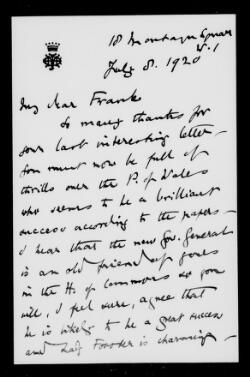 18 Montagu Square
W.1
July 8. 1920
My dear Frank
So many thanks for
your last interesting letter -
You must now be full of
thrills over the P. of Wales
who seems to be a brilliant
success according to the papers -
I hear that the new Gov. General
is an old friend of yours
in the H. of Commons so you
will, I feel sure, agree that
he is likely to be a great success
and Lady Forster is charming -